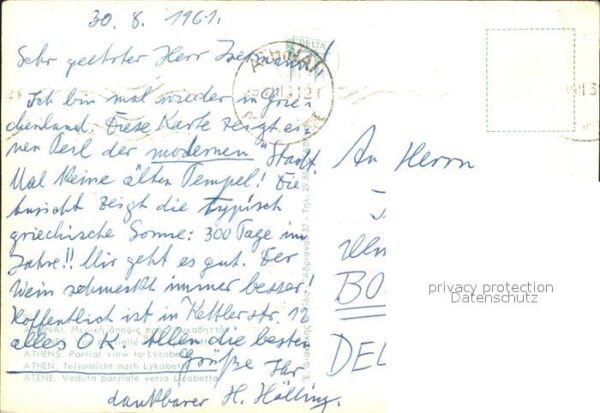 30. 8. 1961.
Sehr geehrter Herr
Ich bin mal wieder in Grie-
chenland. Diese Karte zeigt ei-
nen Teil der modernen Stadt.
Mal keine alten Tempel! Die
Ansicht zeigt die typisch
griechische Sonne: 300 Tage im
Jahre!! Mir geht es gut. Der
Wein schmeckt immer besser!
Hoffentlich ist in Kettlerstr. 12
alles OK. Allen die besten
Grüße Ihr
dankbarer H. Hölling.
DELTA
An Herrn
BO
DEL
privacy protection
Datenschutz
ATHENS. Partial view to Lycabettus
ATHEN. Teilansicht nach Lykabettos
ATENE. Veduta parziale verso Licabetto